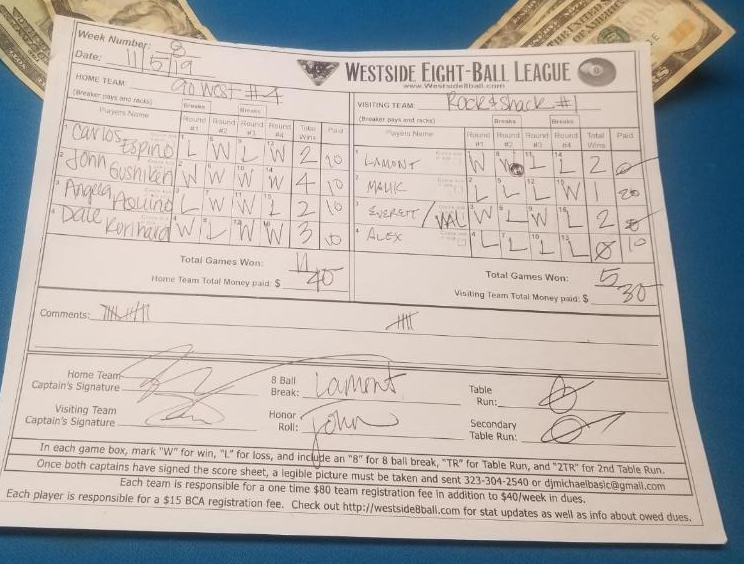 Week Number: 8
Date: 11/5/19
WESTSIDE EIGHT-BALL LEAGUE
www.Westside8ball.com
HOME TEAM: Go West #4
(Breaker pays and racks)
Breaks Breaks
Players Name Round #1 Round #2 Round #3 Round #4 Total Wins Paid
1 Carlos Espino L W L W 2 10
2 John Gushiken W W W W 4 10
3 Angela Aquino L W W L 2 10
4 Dale Reinhard W L W W 3 10
Total Games Won: 11
Home Team Total Money paid: $ 40
VISITING TEAM: Rock & Shack #1
(Breaker pays and racks)
Breaks Breaks
Players Name Round #1 Round #2 Round #3 Round #4 Total Wins Paid
1 LAMONT W W L L 2 0
2 MALIK L L L W 1 20
3 EVERETT/VAL W L W L 2
4 ALEX L L L L 0 10
Total Games Won: 5
Visiting Team Total Money paid: $ 30
Comments:
Home Team Captain's Signature
8 Ball Break: Lamont
Table Run: 0
Visiting Team Captain's Signature
Honor Roll: John
Secondary Table Run: 0
In each game box, mark "W" for win, "L" for loss, and include an "8" for 8 ball break, "TR" for Table Run, and "2TR" for 2nd Table Run.
Once both captains have signed the score sheet, a legible picture must be taken and sent 323-304-2540 or djmichaelbasic@gmail.com
Each team is responsible for a one time $80 team registration fee in addition to $40/week in dues.
Each player is responsible for a $15 BCA registration fee. Check out http://westside8ball.com for stat updates as well as info about owed dues.